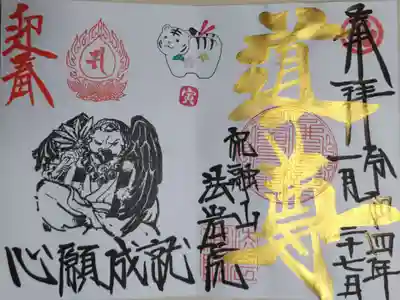 奉拝
令和四年
一月二十七日
道尊
祀融山
法常院
迎春
寅
心願成就